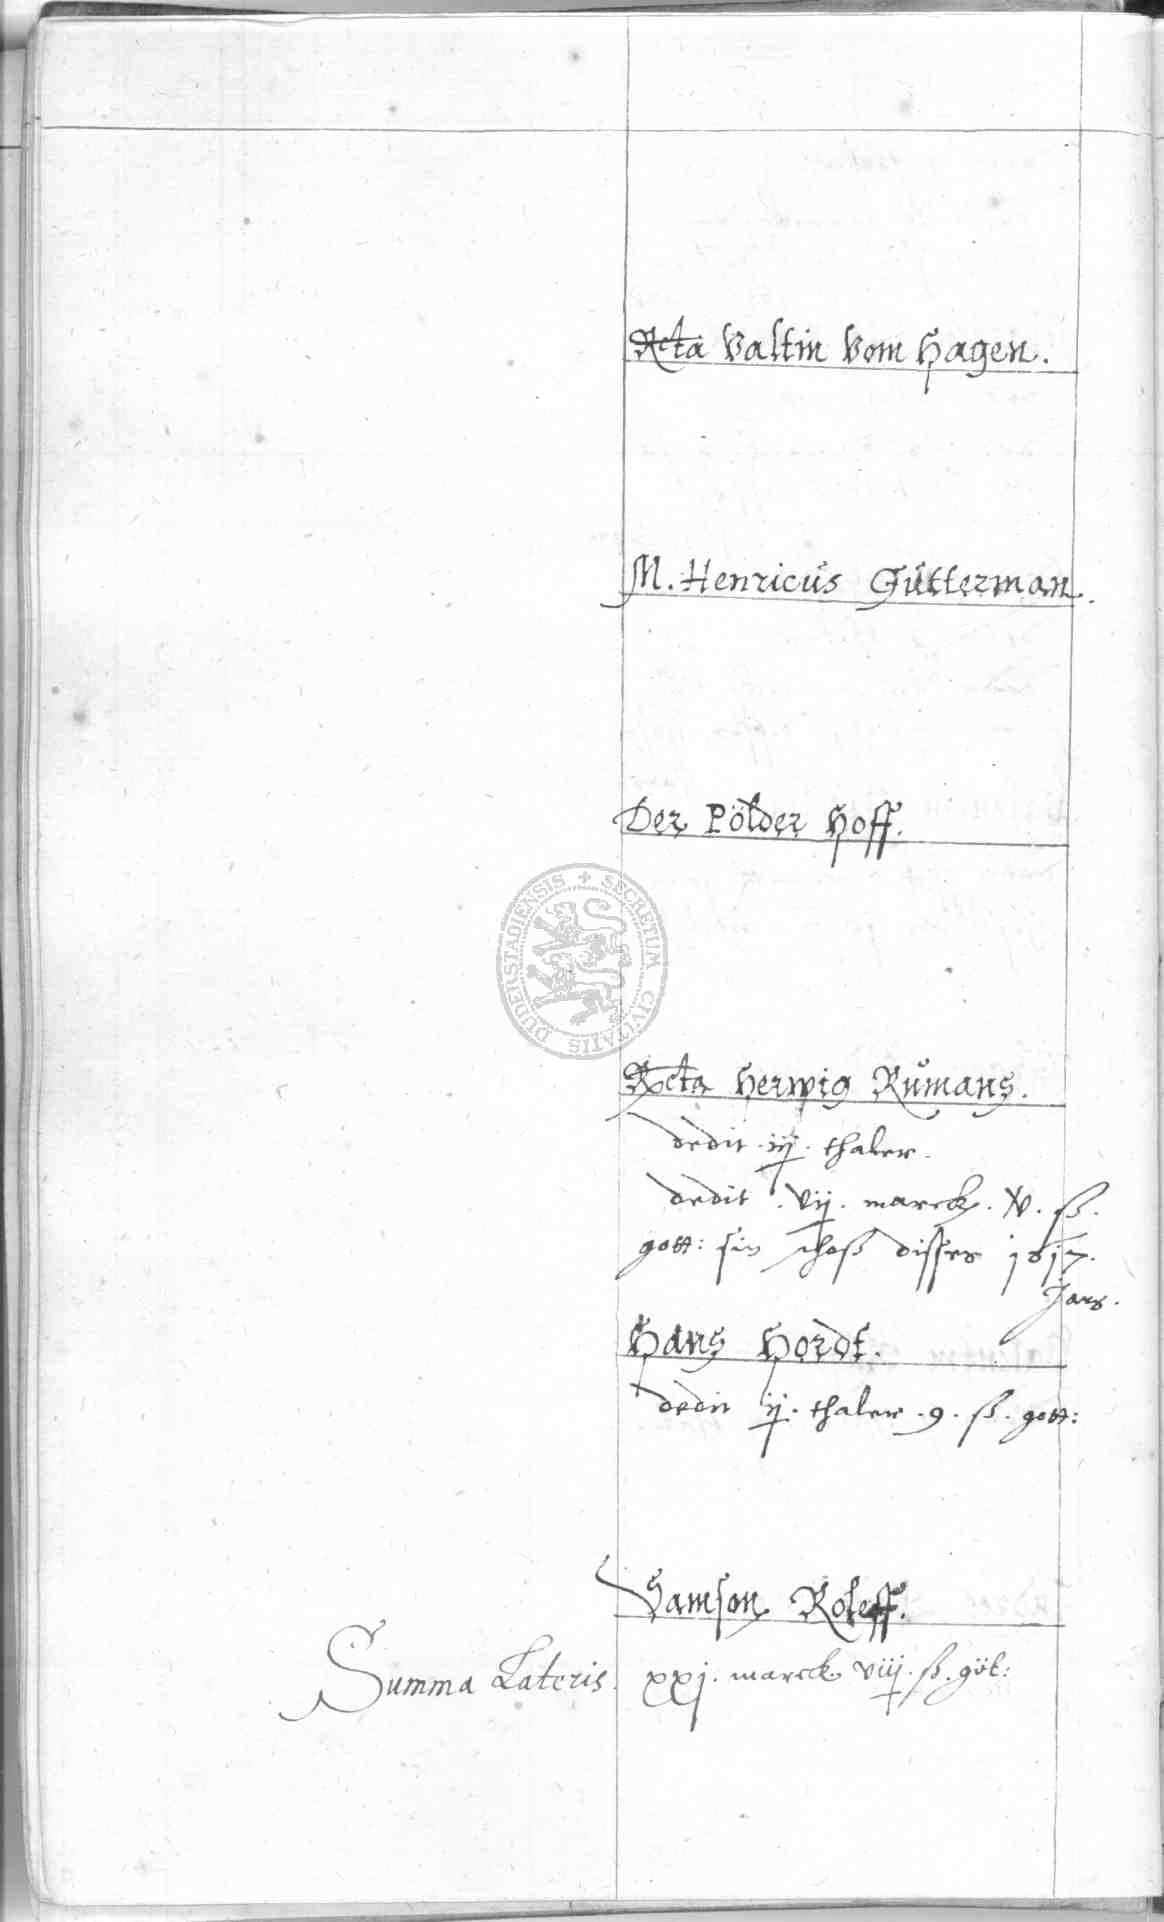 Rcta Valtin Vom Hagen.
M. Henricus Gutterman.
Der Pölder Hoff.
SECRETUM CIVITATIS DUDERSTADIENSIS
Rcta Herwig Rumans.
dedit iij. thaler.
dedit . vij. marck. V. ß.
gott: sin schoß disses 1617.
Jars.
Hans Hordt.
dedit ij. thaler. 9. ß. gott:
Samson Roleff.
Summa Lateris. xxj. marck viij. ß. göt: